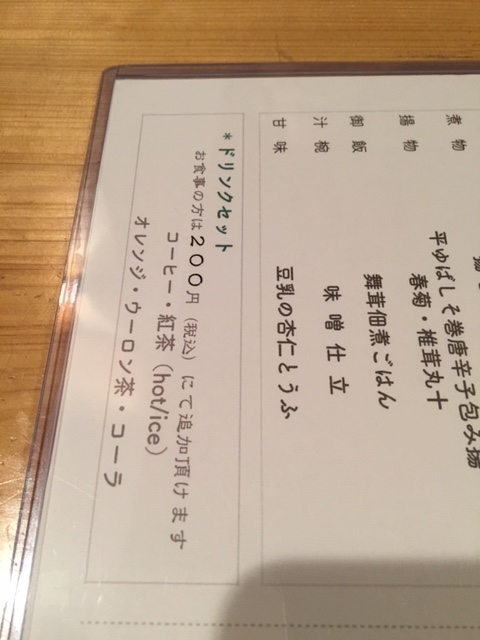 煮物
揚物
平ゆばしそ巻唐辛子包み揚
春菊・椎茸丸十
御飯
舞茸佃煮ごはん
汁椀
味噌仕立
甘味
豆乳の杏仁とうふ
*ドリンクセット
お食事の方は200円(税込)にて追加頂けます
コーヒー・紅茶(hot/ice)
オレンジ・ウーロン茶・コーラ